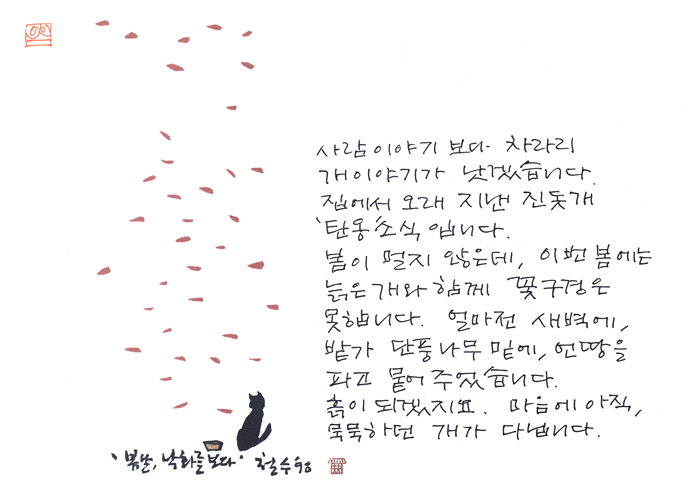 사람이야기 보다 차라리
개이야기가 낫겠습니다.
집에서 오래 지낸 진돗개
'탄옹'소식입니다.
봄이 멀지 않은데, 이번 봄에는
늙은개와 함께 꽃구경은
못합니다. 얼마전 새벽에,
밭가 단풍나무 밑에, 언땅을
파고 묻어 주었습니다.
흙이 되겠지요. 마음에 아직,
묵묵하던 개가 다닙니다.
'봄날, 낙화를 보다' 철수 98